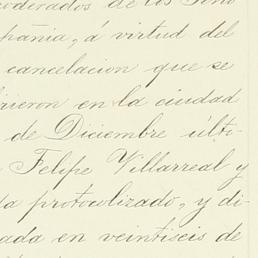 poderados de los Seño
pañia, á virtud del
cancelacion que se
rieron en la ciudad
de Diciembre últi-
Felipe Villarreal y
da protocolizado, y di-
ada en veintiseis de